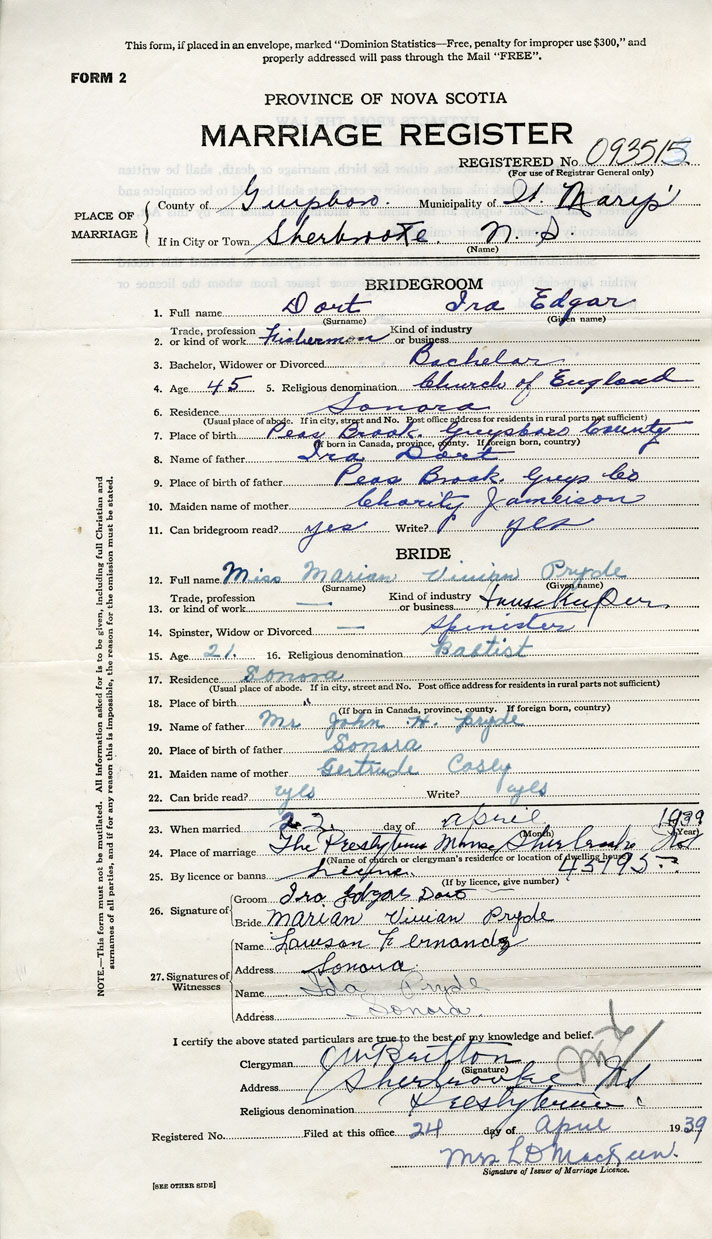 This form, if placed in an envelope, marked "Dominion Statistics—Free, penalty for improper use $300," and
properly addressed will pass through the Mail "FREE".
FORM 2
PROVINCE OF NOVA SCOTIA
MARRIAGE REGISTER
REGISTERED No. 093515
(For use of Registrar General only)
PLACE OF MARRIAGE
County of Guysboro. Municipality of St. Mary's
If in City or Town Sherbrooke. N. S.
(Name)
BRIDEGROOM
1. Full name Dort Ira Edgar
(Surname) (Given name)
2. Trade, profession or kind of work Fisherman Kind of industry or business
3. Bachelor, Widower or Divorced Bachelor
4. Age 45 5. Religious denomination Church of England
6. Residence Sonora
(Usual place of abode. If in city, street and No. Post office address for residents in rural parts not sufficient)
7. Place of birth Peas Brook. Guysboro County
(If born in Canada, province, county. If foreign born, country)
8. Name of father Ira Dort
9. Place of birth of father Peas Brook. Guys Co
10. Maiden name of mother Charity Jameison
11. Can bridegroom read? yes Write? yes
BRIDE
12. Full name Miss Marian Vivian Pryde
(Surname) (Given name)
13. Trade, profession or kind of work — Kind of industry or business House Keeper
14. Spinster, Widow or Divorced — Spinister
15. Age 21. 16. Religious denomination Babtist
17. Residence Sonora
(Usual place of abode. If in city, street and No. Post office address for residents in rural parts not sufficient)
18. Place of birth "
(If born in Canada, province, county. If foreign born, country)
19. Name of father Mr John H. Pryde
20. Place of birth of father Sonora
21. Maiden name of mother Gertrude Casey
22. Can bride read? yes Write? yes
23. When married 22 day of April 1939
(Month) (Year)
24. Place of marriage The Presbyterian Manse Sherbrooke NS
(Name of church or clergyman's residence or location of dwelling house)
25. By licence or banns license 45195
(If by licence, give number)
26. Signature of
Groom Ira Edgar Dort
Bride Marian Vivian Pryde
27. Signatures of Witnesses
Name Lawson Fernandz
Address Sonora
Name Ida Pryde
Address Sonora
I certify the above stated particulars are true to the best of my knowledge and belief.
Clergyman Britton
(Signature)
Address Sherbrooke NS
Religious denomination Presbyterian
Registered No. Filed at this office 24 day of April 1939
Mrs L D MacKeen.
Signature of Issuer of Marriage Licence.
[SEE OTHER SIDE]
NOTE.—This form must not be mutilated. All information asked for is to be given, including full Christian and
surnames of all parties, and if for any reason this is impossible, the reason for the omission must be stated.